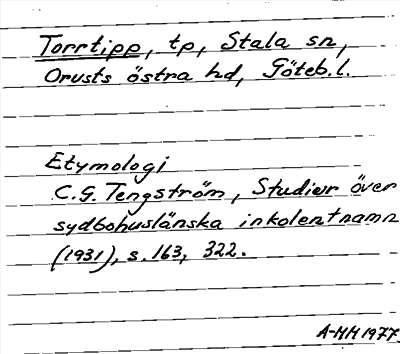 Torrtipp, tp, Stala sn,
Orusts östra hd, Göteb.l.
Etymologi
C.G. Tengström, Studier över
sydbohuslänska inkolentnamn
(1931), s. 163, 322.
A-HH 1977